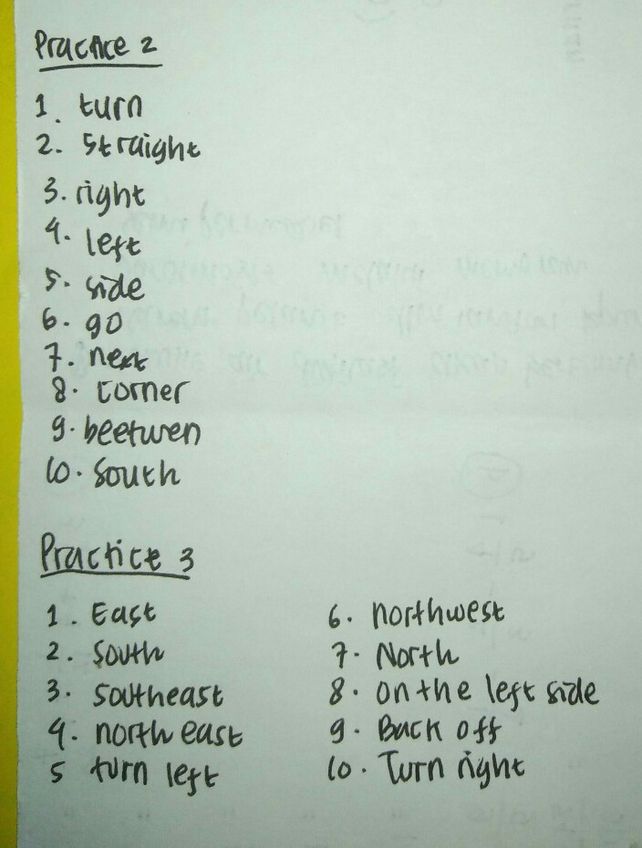 Practice 2
1. turn
2. straight
3. right
4. left
5. side
6. go
7. next
8. corner
9. beetwen
10. South
Practice 3
1. East
2. South
3. southeast
4. north east
5 turn left
6. northwest
7. North
8. on the left side
9. Back off
10. Turn right